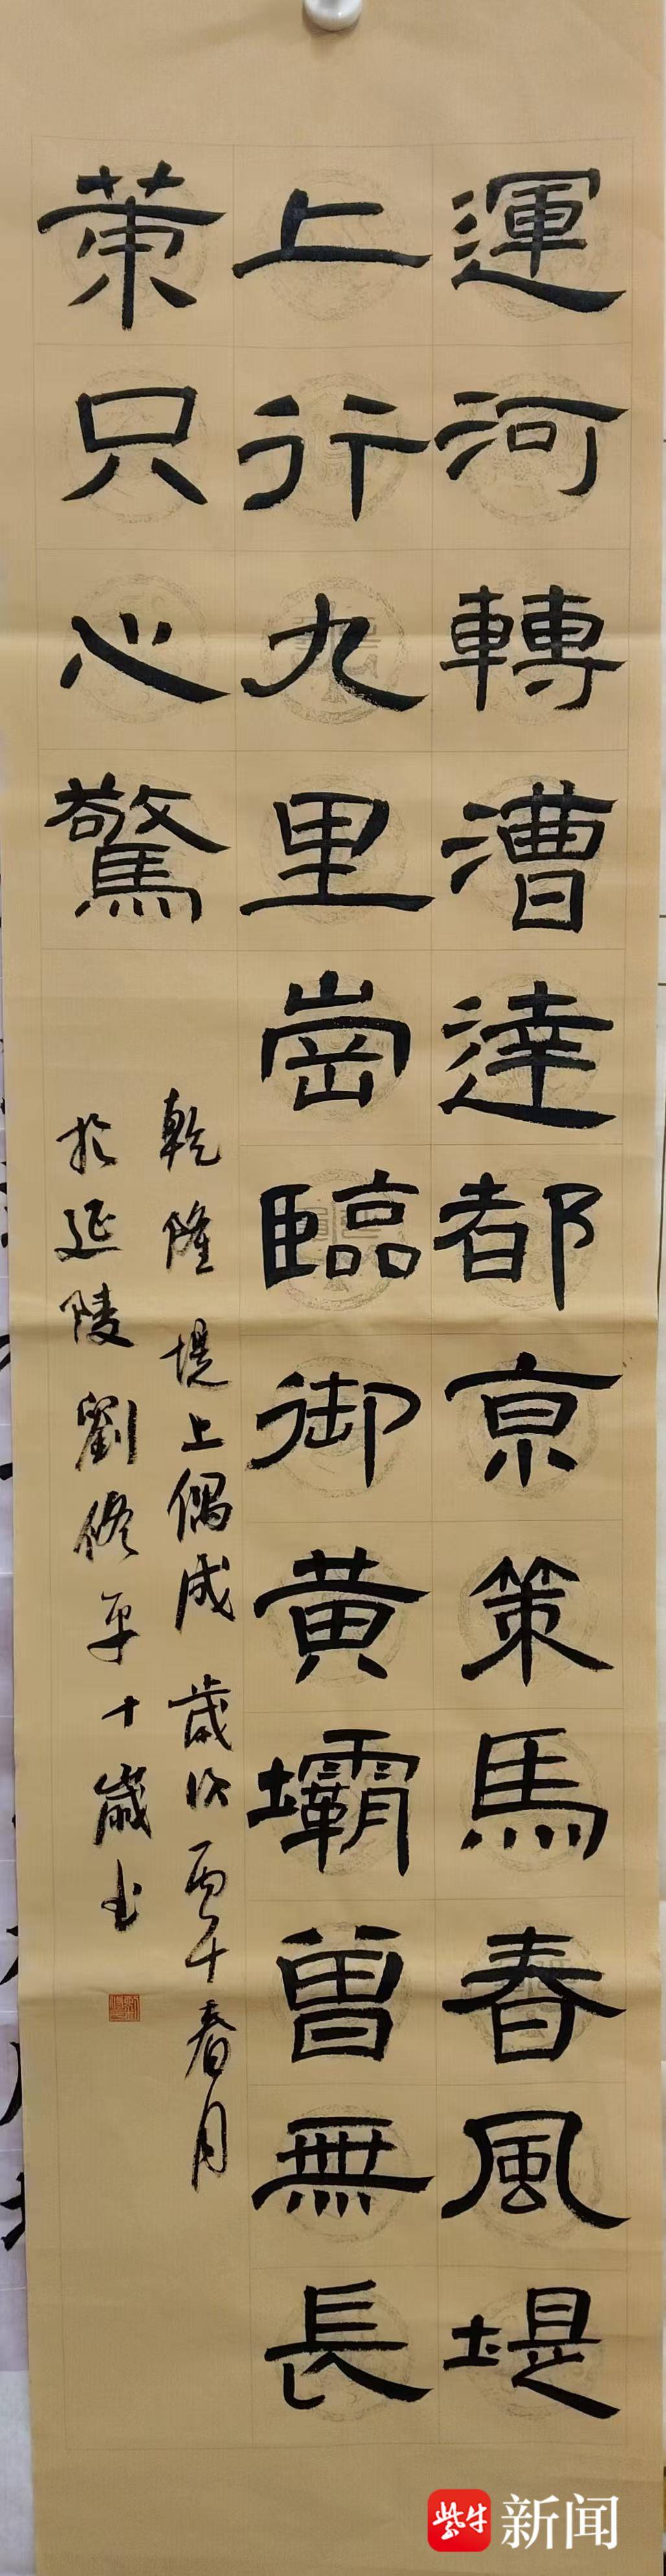 運河轉漕達都京策馬春風堤
上行九里崗臨御黄壩曾無長
策只心驚
乾隆堤上偶成 歲次丙午春月
於延陵劉修平十歲书
紫牛新闻